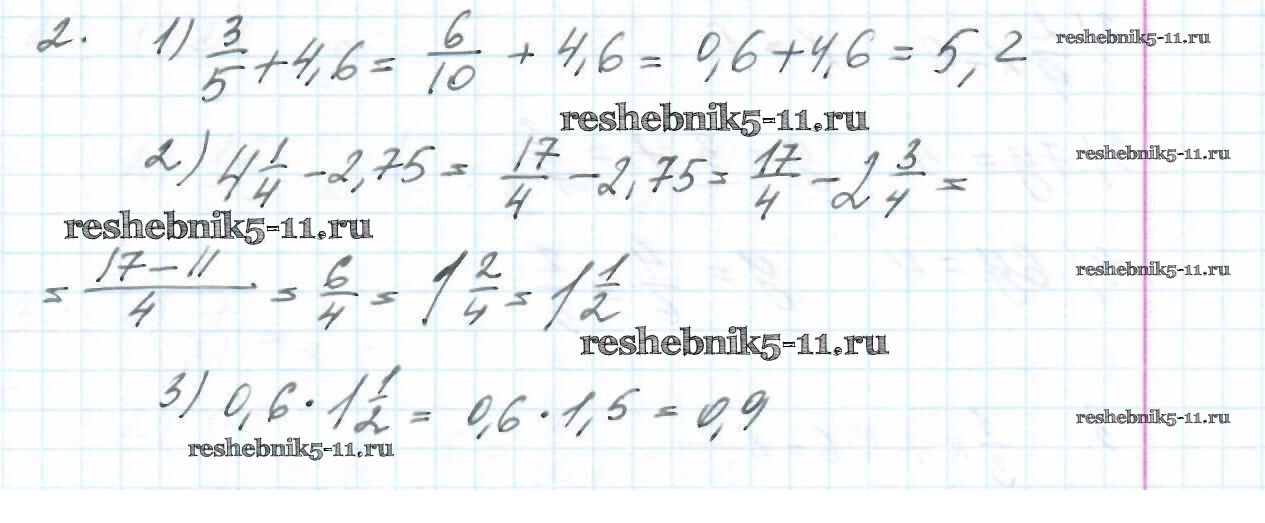 2. 1) 3/5 + 4,6 = 6/10 + 4,6 = 0,6 + 4,6 = 5,2 reshebnik5-11.ru
reshebnik5-11.ru
2) 4 1/4 - 2,75 = 17/4 - 2,75 = 17/4 - 2 3/4 = reshebnik5-11.ru
reshebnik5-11.ru
= 17-11/4 = 6/4 = 1 2/4 = 1 1/2 reshebnik5-11.ru
reshebnik5-11.ru
3) 0,6 · 1 1/2 = 0,6 · 1,5 = 0,9 reshebnik5-11.ru
reshebnik5-11.ru